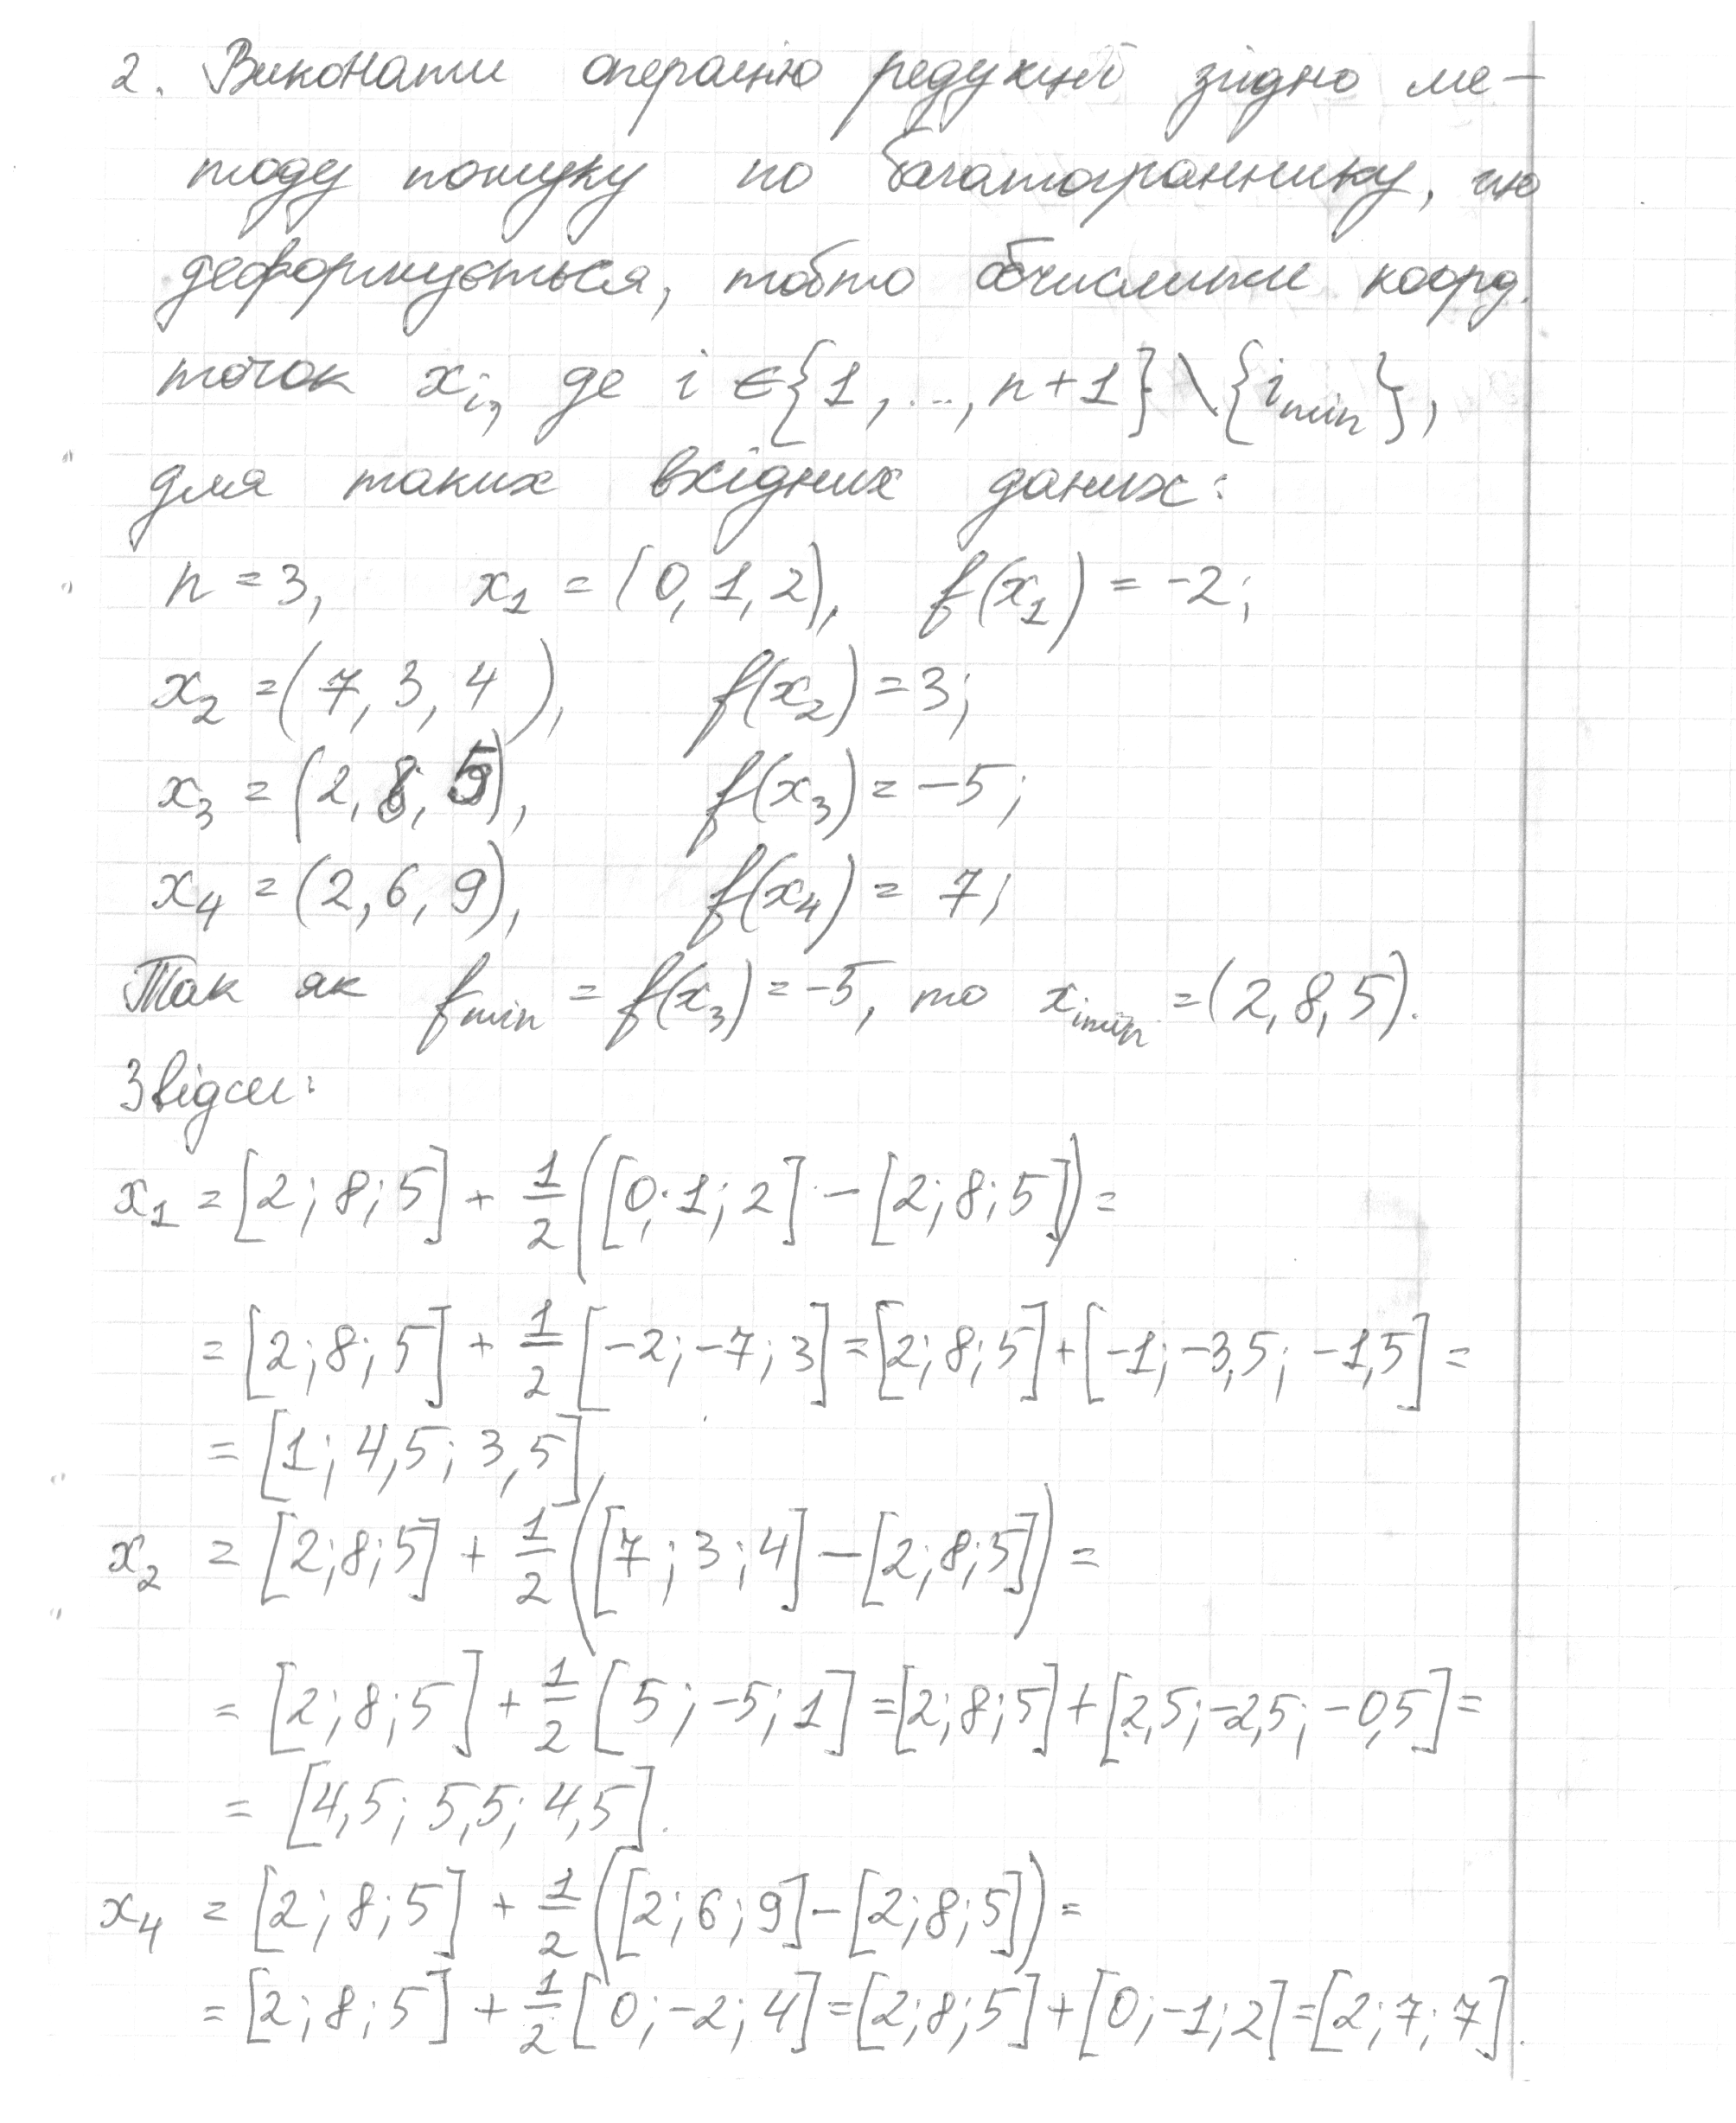 2. Виконати операцію редукції згідно ме-
тоду пошуку по багатограннику, що
деформується, тобто обчислити коорд.
точок x_i, де i ∈ {1, ..., n+1} \ {i_min},
для таких вхідних даних:
n = 3, x_1 = (0, 1, 2), f(x_1) = -2;
x_2 = (7, 3, 4), f(x_2) = 3;
x_3 = (2, 8, 5), f(x_3) = -5;
x_4 = (2, 6, 9), f(x_4) = 7;
Так як f_min = f(x_3) = -5, то x_imin = (2, 8, 5).
Звідси:
x_1 = [2; 8; 5] + 1/2 ([0; 1; 2] - [2; 8; 5]) =
= [2; 8; 5] + 1/2 [-2; -7; 3] = [2; 8; 5] + [-1; -3,5; -1,5] =
= [1; 4,5; 3,5].
x_2 = [2; 8; 5] + 1/2 ([7; 3; 4] - [2; 8; 5]) =
= [2; 8; 5] + 1/2 [5; -5; 1] = [2; 8; 5] + [2,5; -2,5; -0,5] =
= [4,5; 5,5; 4,5].
x_4 = [2; 8; 5] + 1/2 ([2; 6; 9] - [2; 8; 5]) =
= [2; 8; 5] + 1/2 [0; -2; 4] = [2; 8; 5] + [0; -1; 2] = [2; 7; 7].